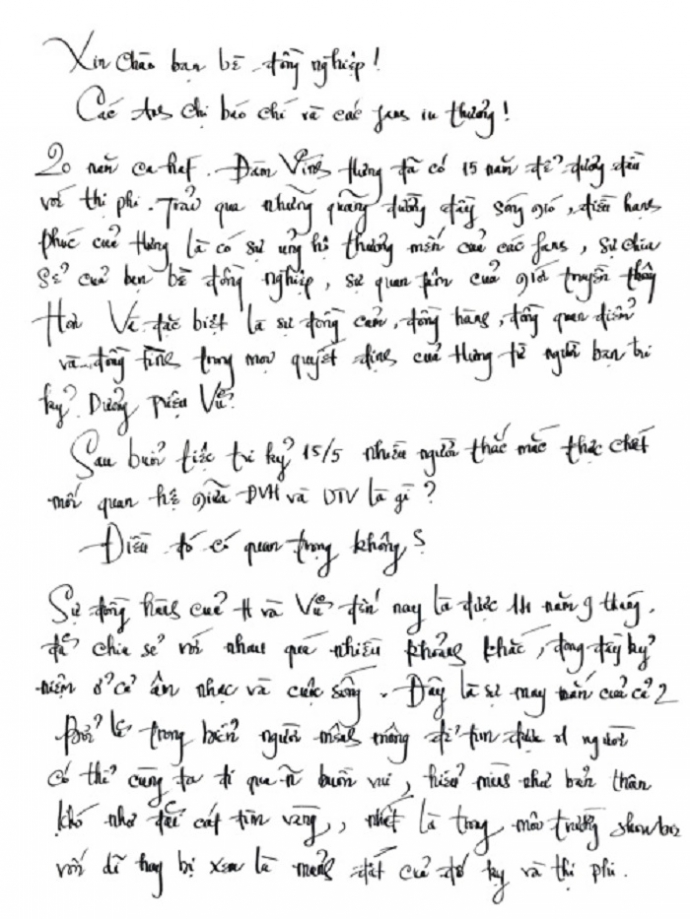 Xin chào bạn bè đồng nghiệp!
Các Anh chị báo chí và các fans iu thương!
20 năm ca hát. Đàm Vĩnh Hưng đã có 15 năm để đương đầu
với thị phi. Trải qua những quãng đường đầy sóng gió, điều hạnh
phúc của Hưng là có sự ủng hộ thương mến của các fans, sự chia
sẻ của bạn bè đồng nghiệp, sự quan tâm của giới truyền thông
Hơn Và đặc biệt là sự đồng cảm, đồng hành, đồng quan điểm
và đồng tình trong mọi quyết định của Hưng từ người bạn tri
kỷ. Dương Triệu Vũ.
Sau buổi tiệc tri kỷ 15/5 nhiều người thắc mắc thực chất
mối quan hệ giữa ĐVH và DTV là gì?
Điều đó có quan trọng không?
Sự đồng hành của H và Vũ đến nay là được 14 năm 9 tháng.
đã chia sẻ với nhau quá nhiều khoảng khắc, đong đầy kỷ
niệm ở cả âm nhạc và cuộc sống. Đây là sự may mắn của cả 2
Bởi lẽ trong biển người mênh mông để tìm được 1 người
có thể cùng ta đi qua buồn vui, hiểu mình như bản thân
khó như đãi cát tìm vàng, nhất là trong môi trường showbiz
vốn dĩ hay bị xem là mảnh đất của đố kỵ và thị phi.